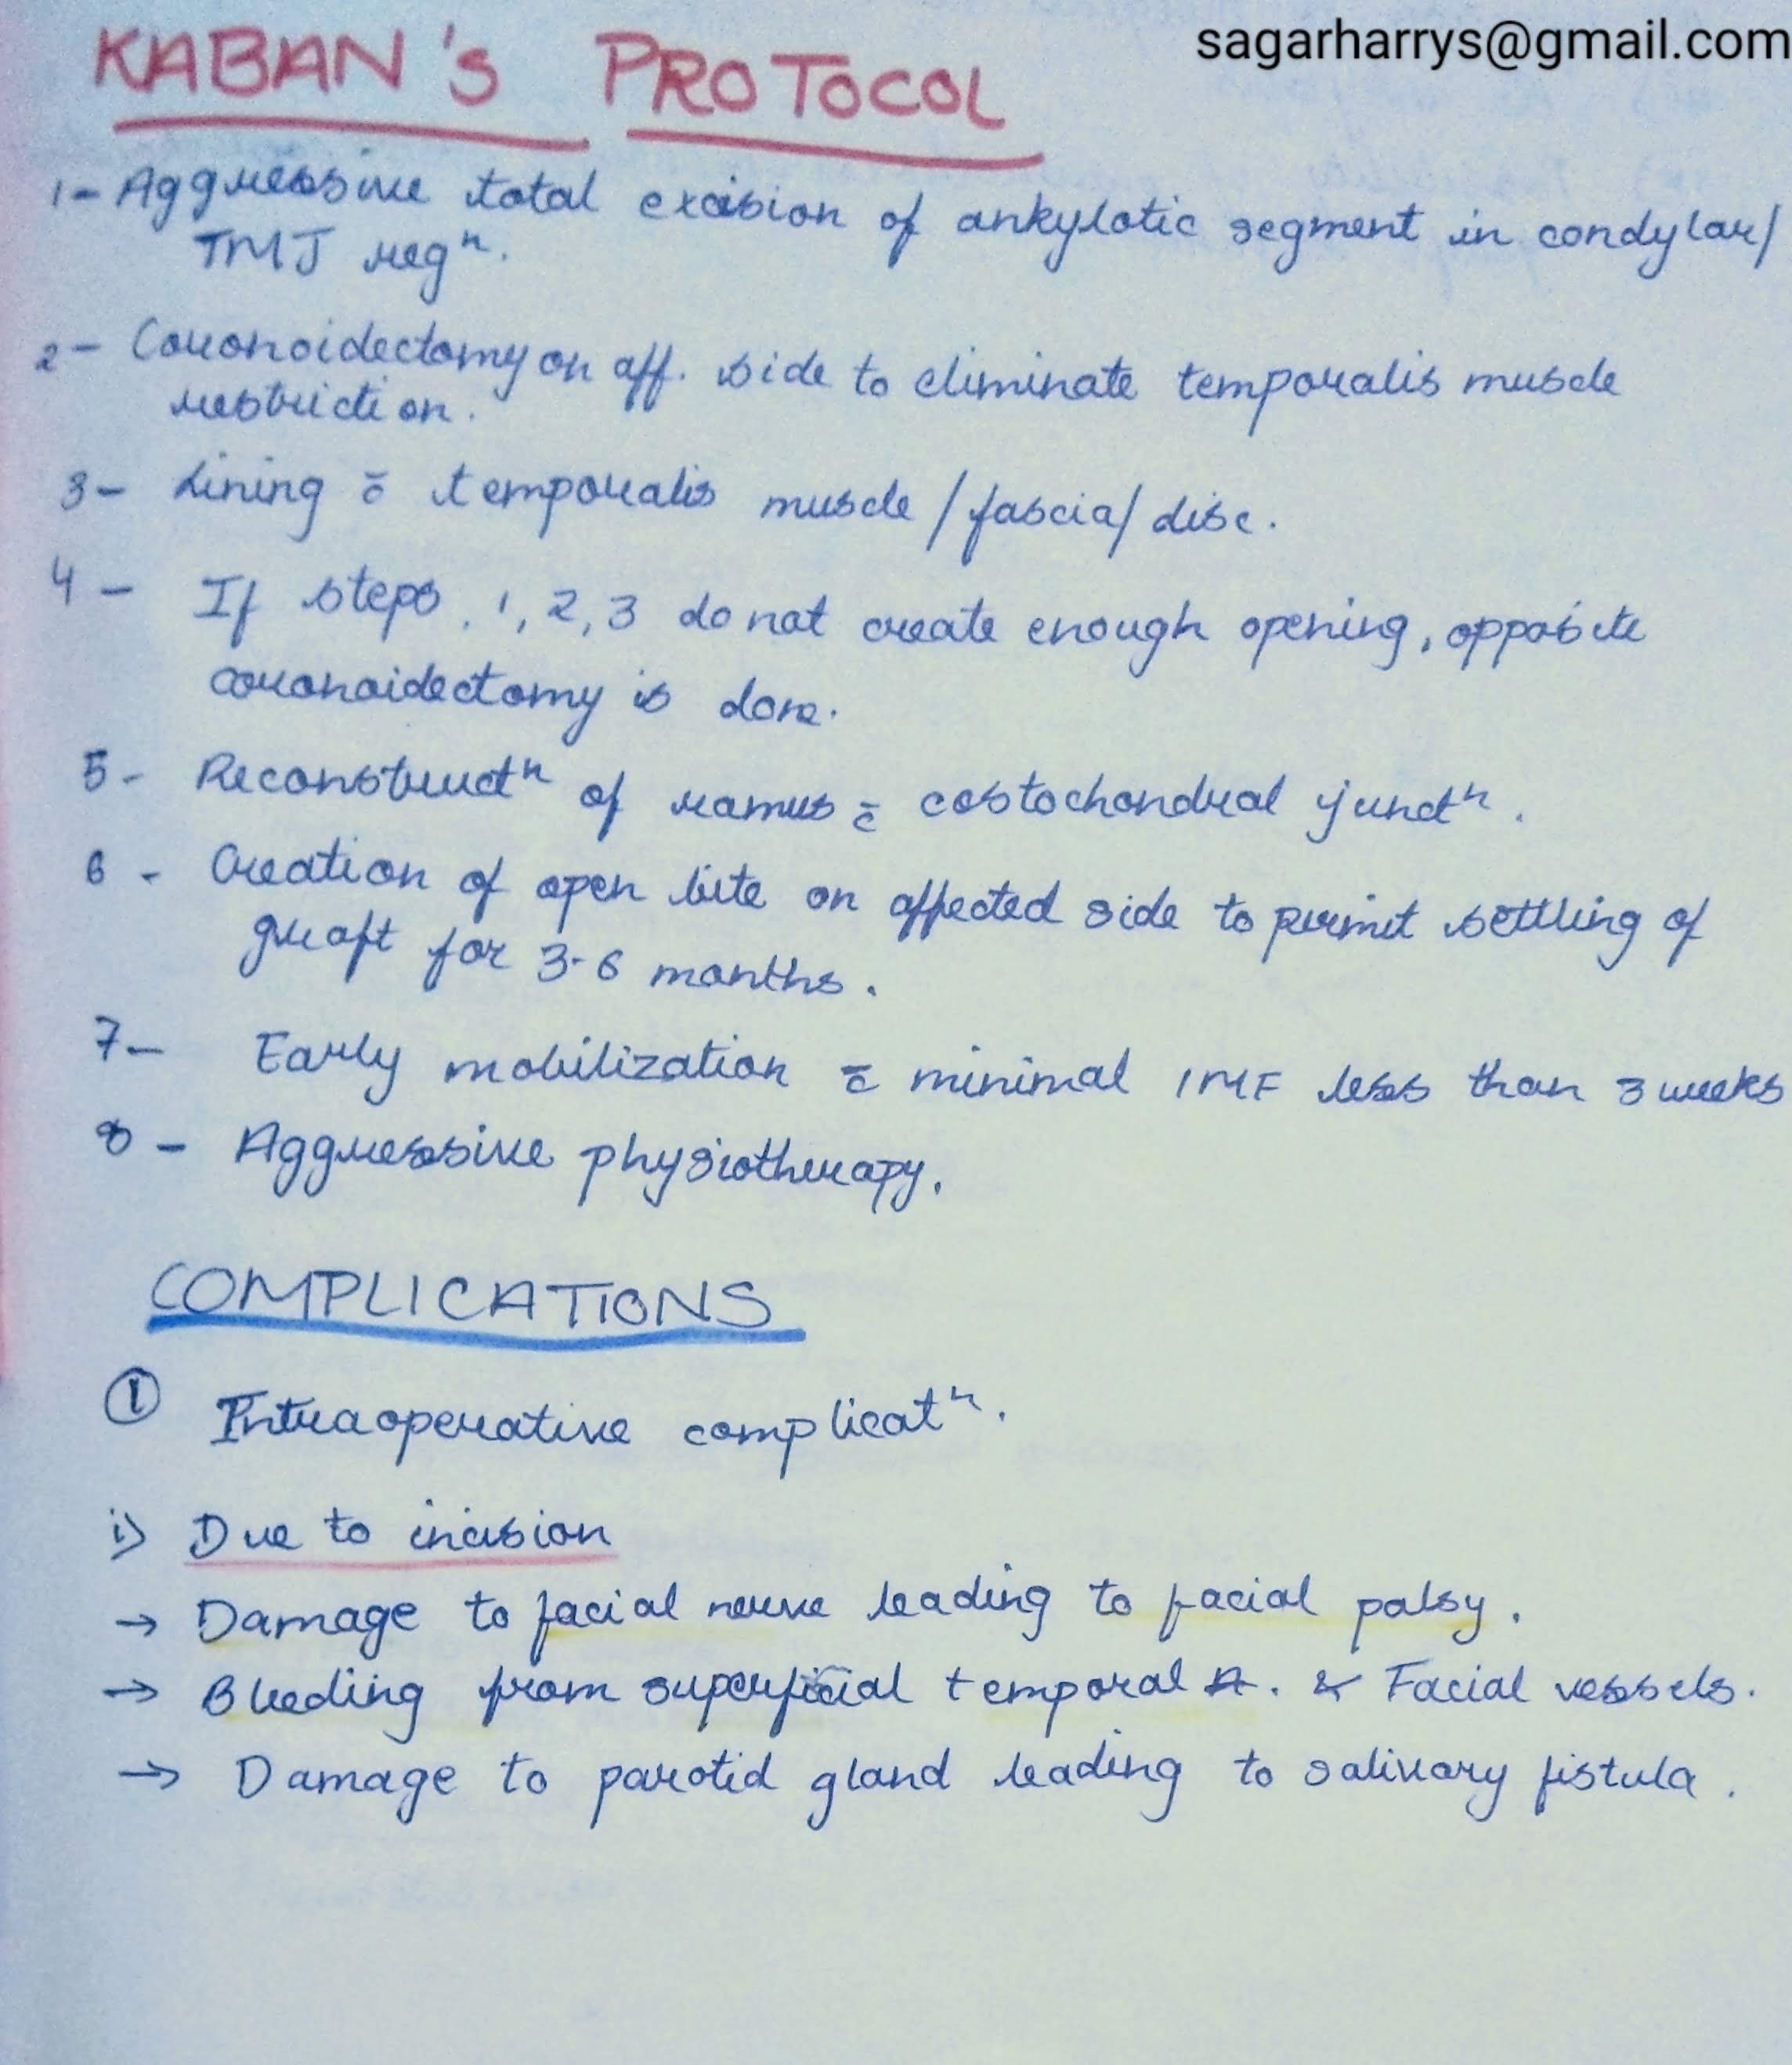 sagarharrys@gmail.com
KABAN's PROTOCOL
1- Aggressive total excision of ankylotic segment in condylar/
TMJ regⁿ.
2- Coronoidectomy on aff. side to eliminate temporalis muscle
restriction.
3- Lining c̄ temporalis muscle/fascia/disc.
4- If steps. 1, 2, 3 do not create enough opening, opposite
coronoidectomy is done.
5- Reconstructⁿ of ramus c̄ costochondral junctⁿ.
6- Creation of open bite on affected side to permit settling of
graft for 3-6 months.
7- Early mobilization c̄ minimal IMF less than 3 weeks
8- Aggressive physiotherapy.
COMPLICATIONS
① Intraoperative complicatⁿ.
i) Due to incision
→ Damage to facial nerve leading to facial palsy.
→ Bleeding from superficial temporal A. & Facial vessels.
→ Damage to parotid gland leading to salivary fistula.